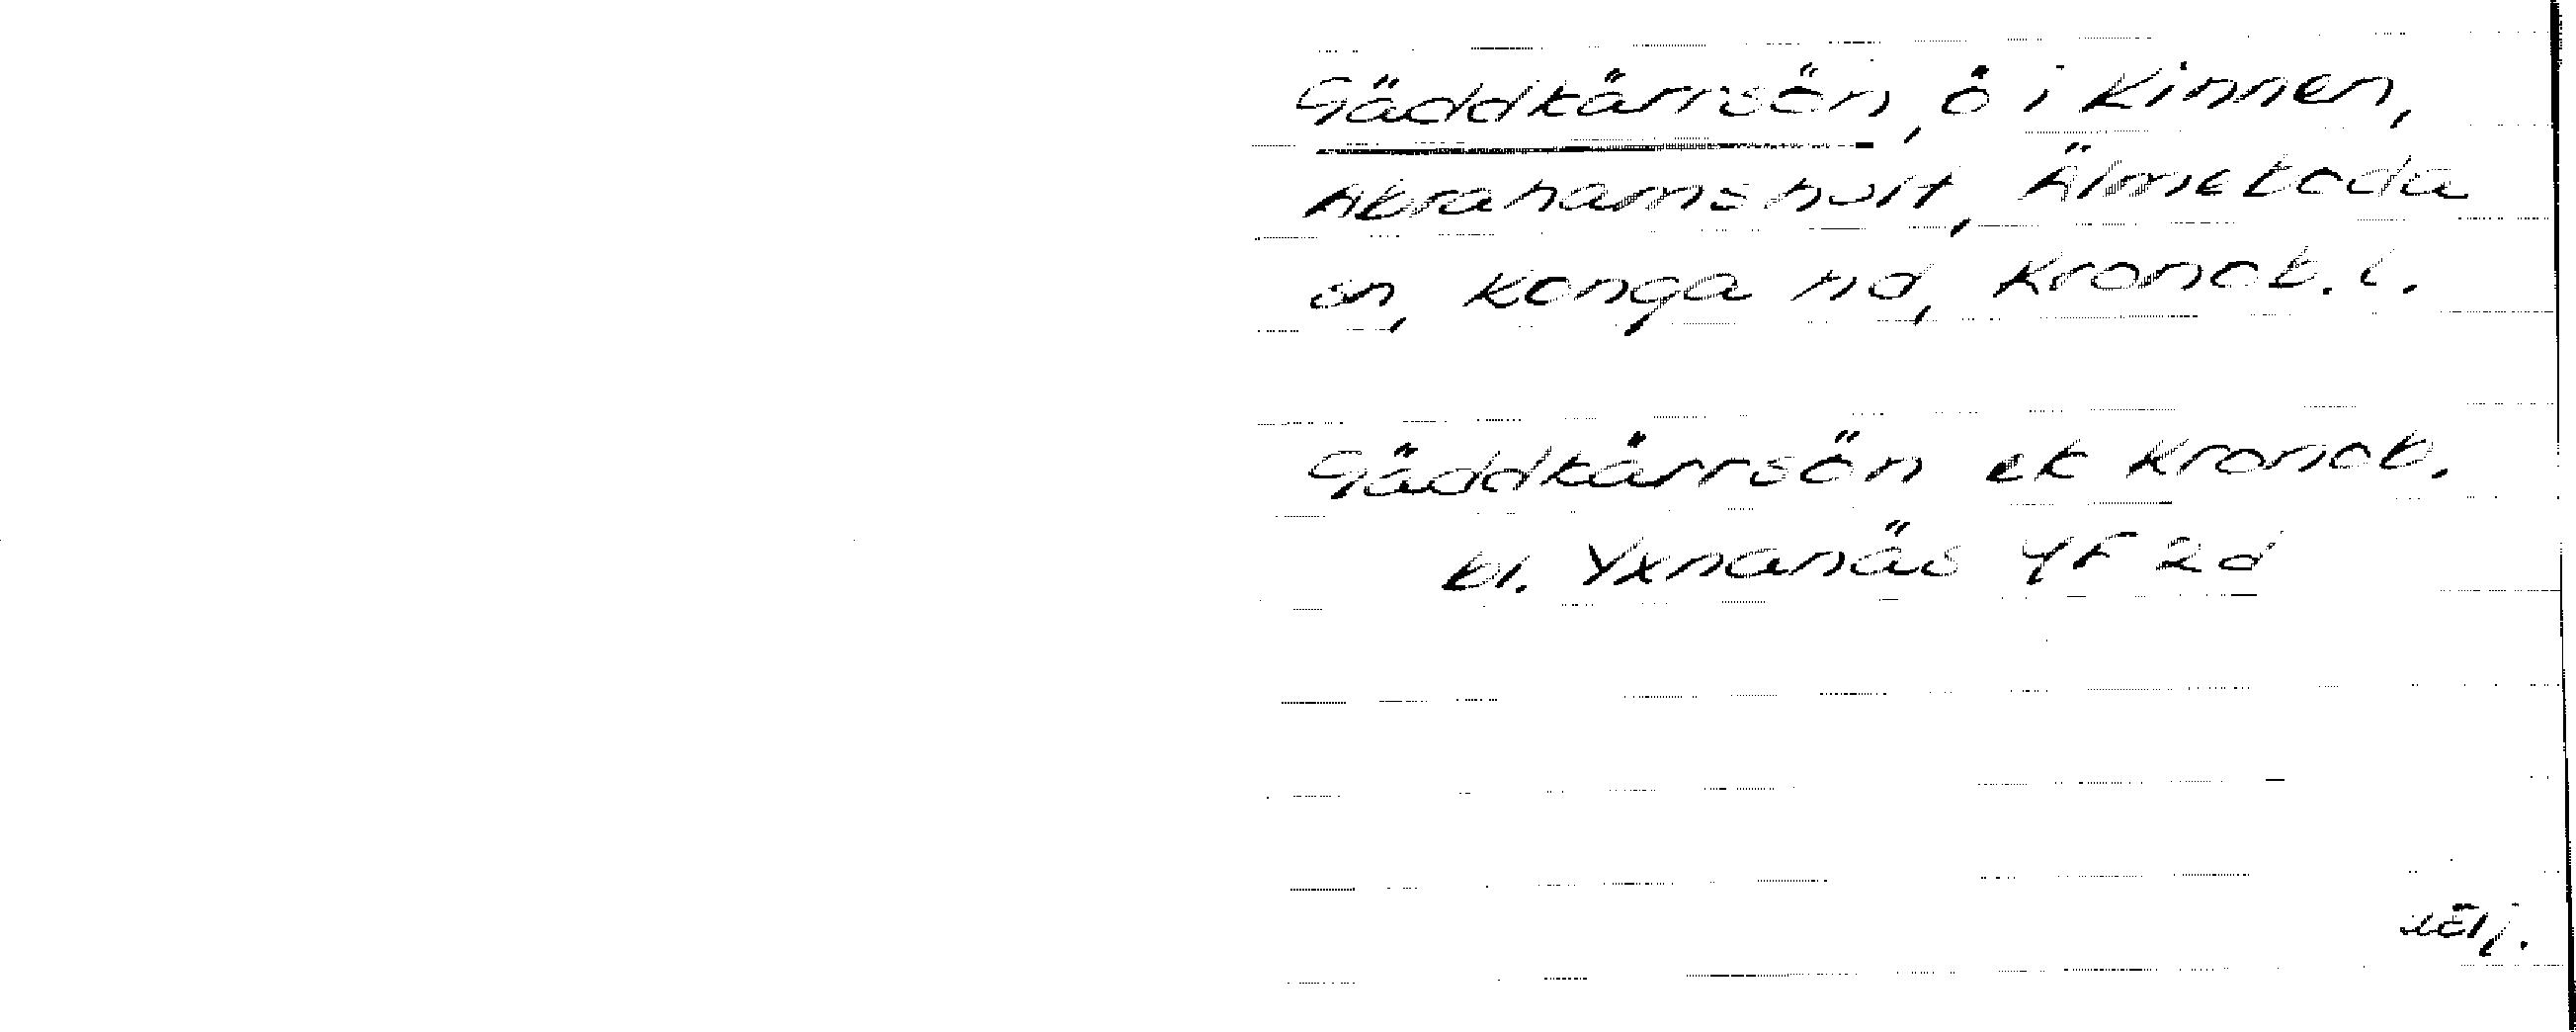 Gäddkärrsön, ö i Kinnen,
Abrahamshult, Älmeboda
sn, Konga hd, Kronob. l.
Gäddkärrsön ek Kronob.
bl. Yxnanäs 4F 2d